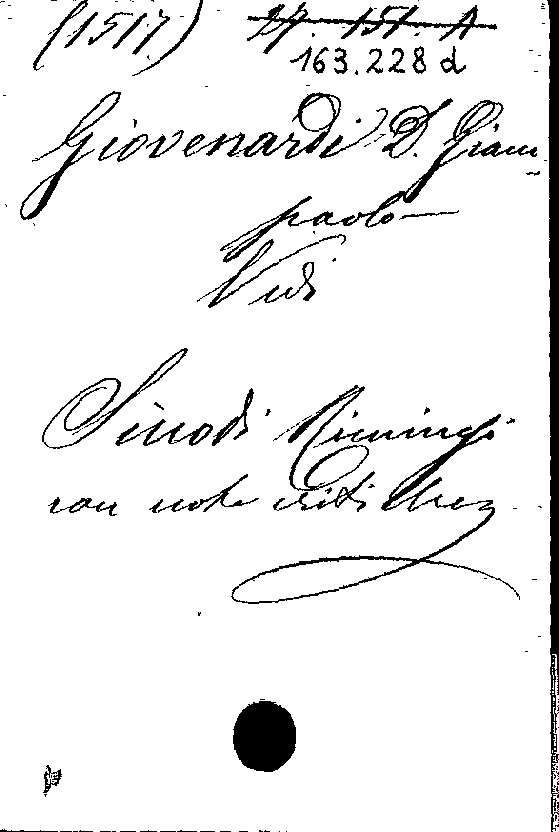 (1517) 27. 151. A
163.228 d
Giovenardi D. Giam-
paolo
Vidi
Sinodi Riminesi
con note critiche